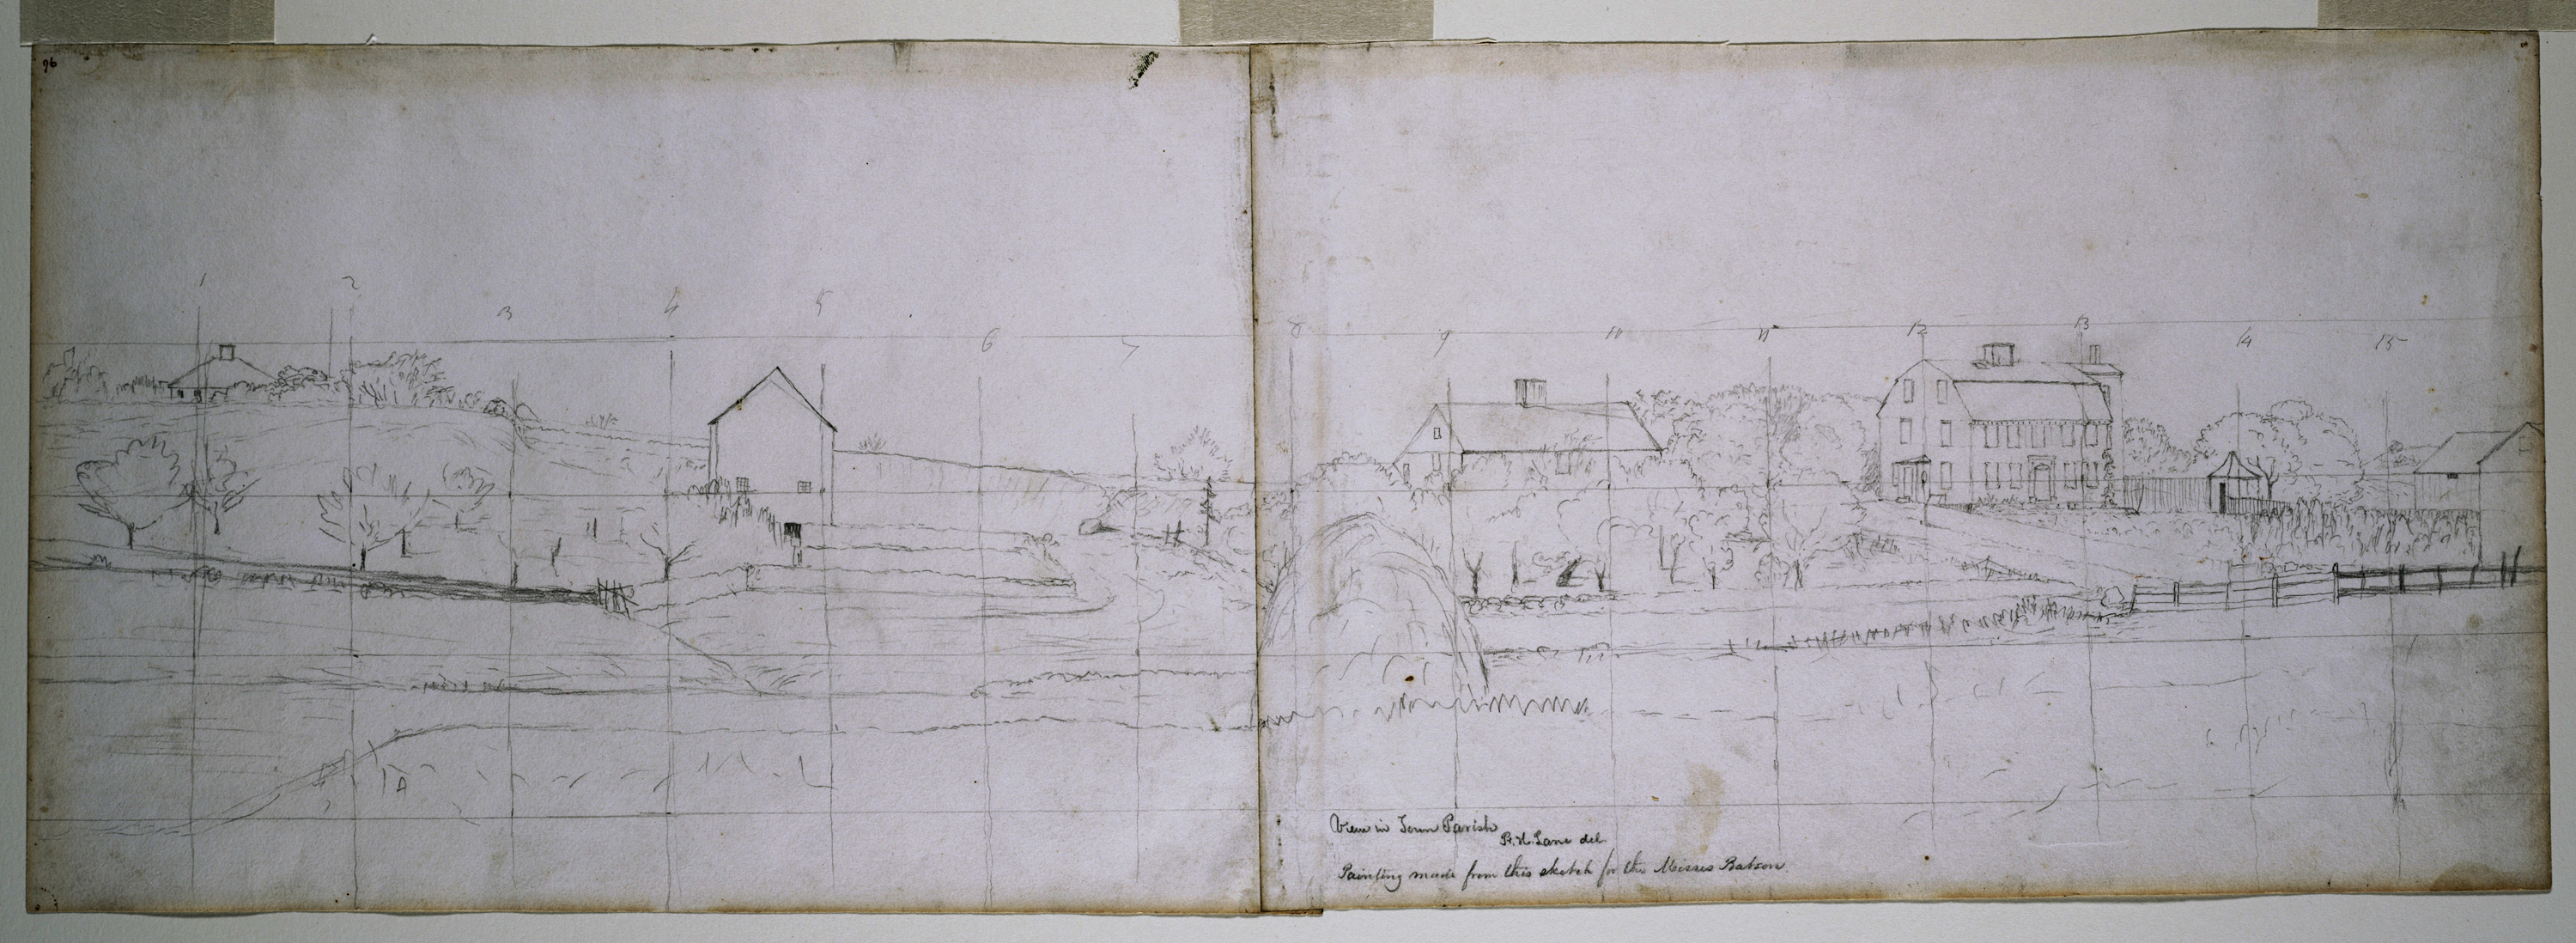 96
1 2 3 4 5 6 7 8 9 10 11 12 13 14 15
View in Town Parish
F. H. Lane del.
Painting made from this sketch for the Misses Babson